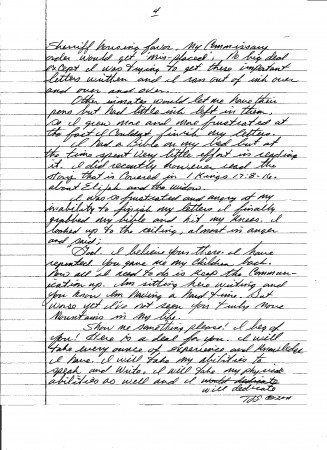 4
Sherriff housing favor. My Commissary
order would get "mis-placed". No big deal
except I was trying to get these important
letters written and I ran out of ink over
and over and over.
Other inmates would let me have their
pens but had little ink left in them.
So I grew more and more frustrated at
the fact I couldn't finish my letters.
I had a Bible on my bed but at
the time spent very little effort in reading
it. I did recently however read the
story that is covered in 1 Kings 17:8-16.
about Elijah and the widow.
I was so frustrated and angry at my
inability to finish my letters I finally
grabbed my bible and hit my knees. I
looked up to the ceiling, almost in anger
and said;
God. I believe your there. I have
repented. You gave me my children back.
Now all I need to do is keep the commun-
ication up. Am sitting here writing and
you know Am having a hard time. But
worse yet it's not seen you truly move
Mountains in my life.
Show me something please! I beg of
you! Here is a deal for you. I will
take every ounce of experience and knowledge
I have. I will take my abilities to
speak and write. I will take my physical
abilities as well and I would dedicate
will dedicate